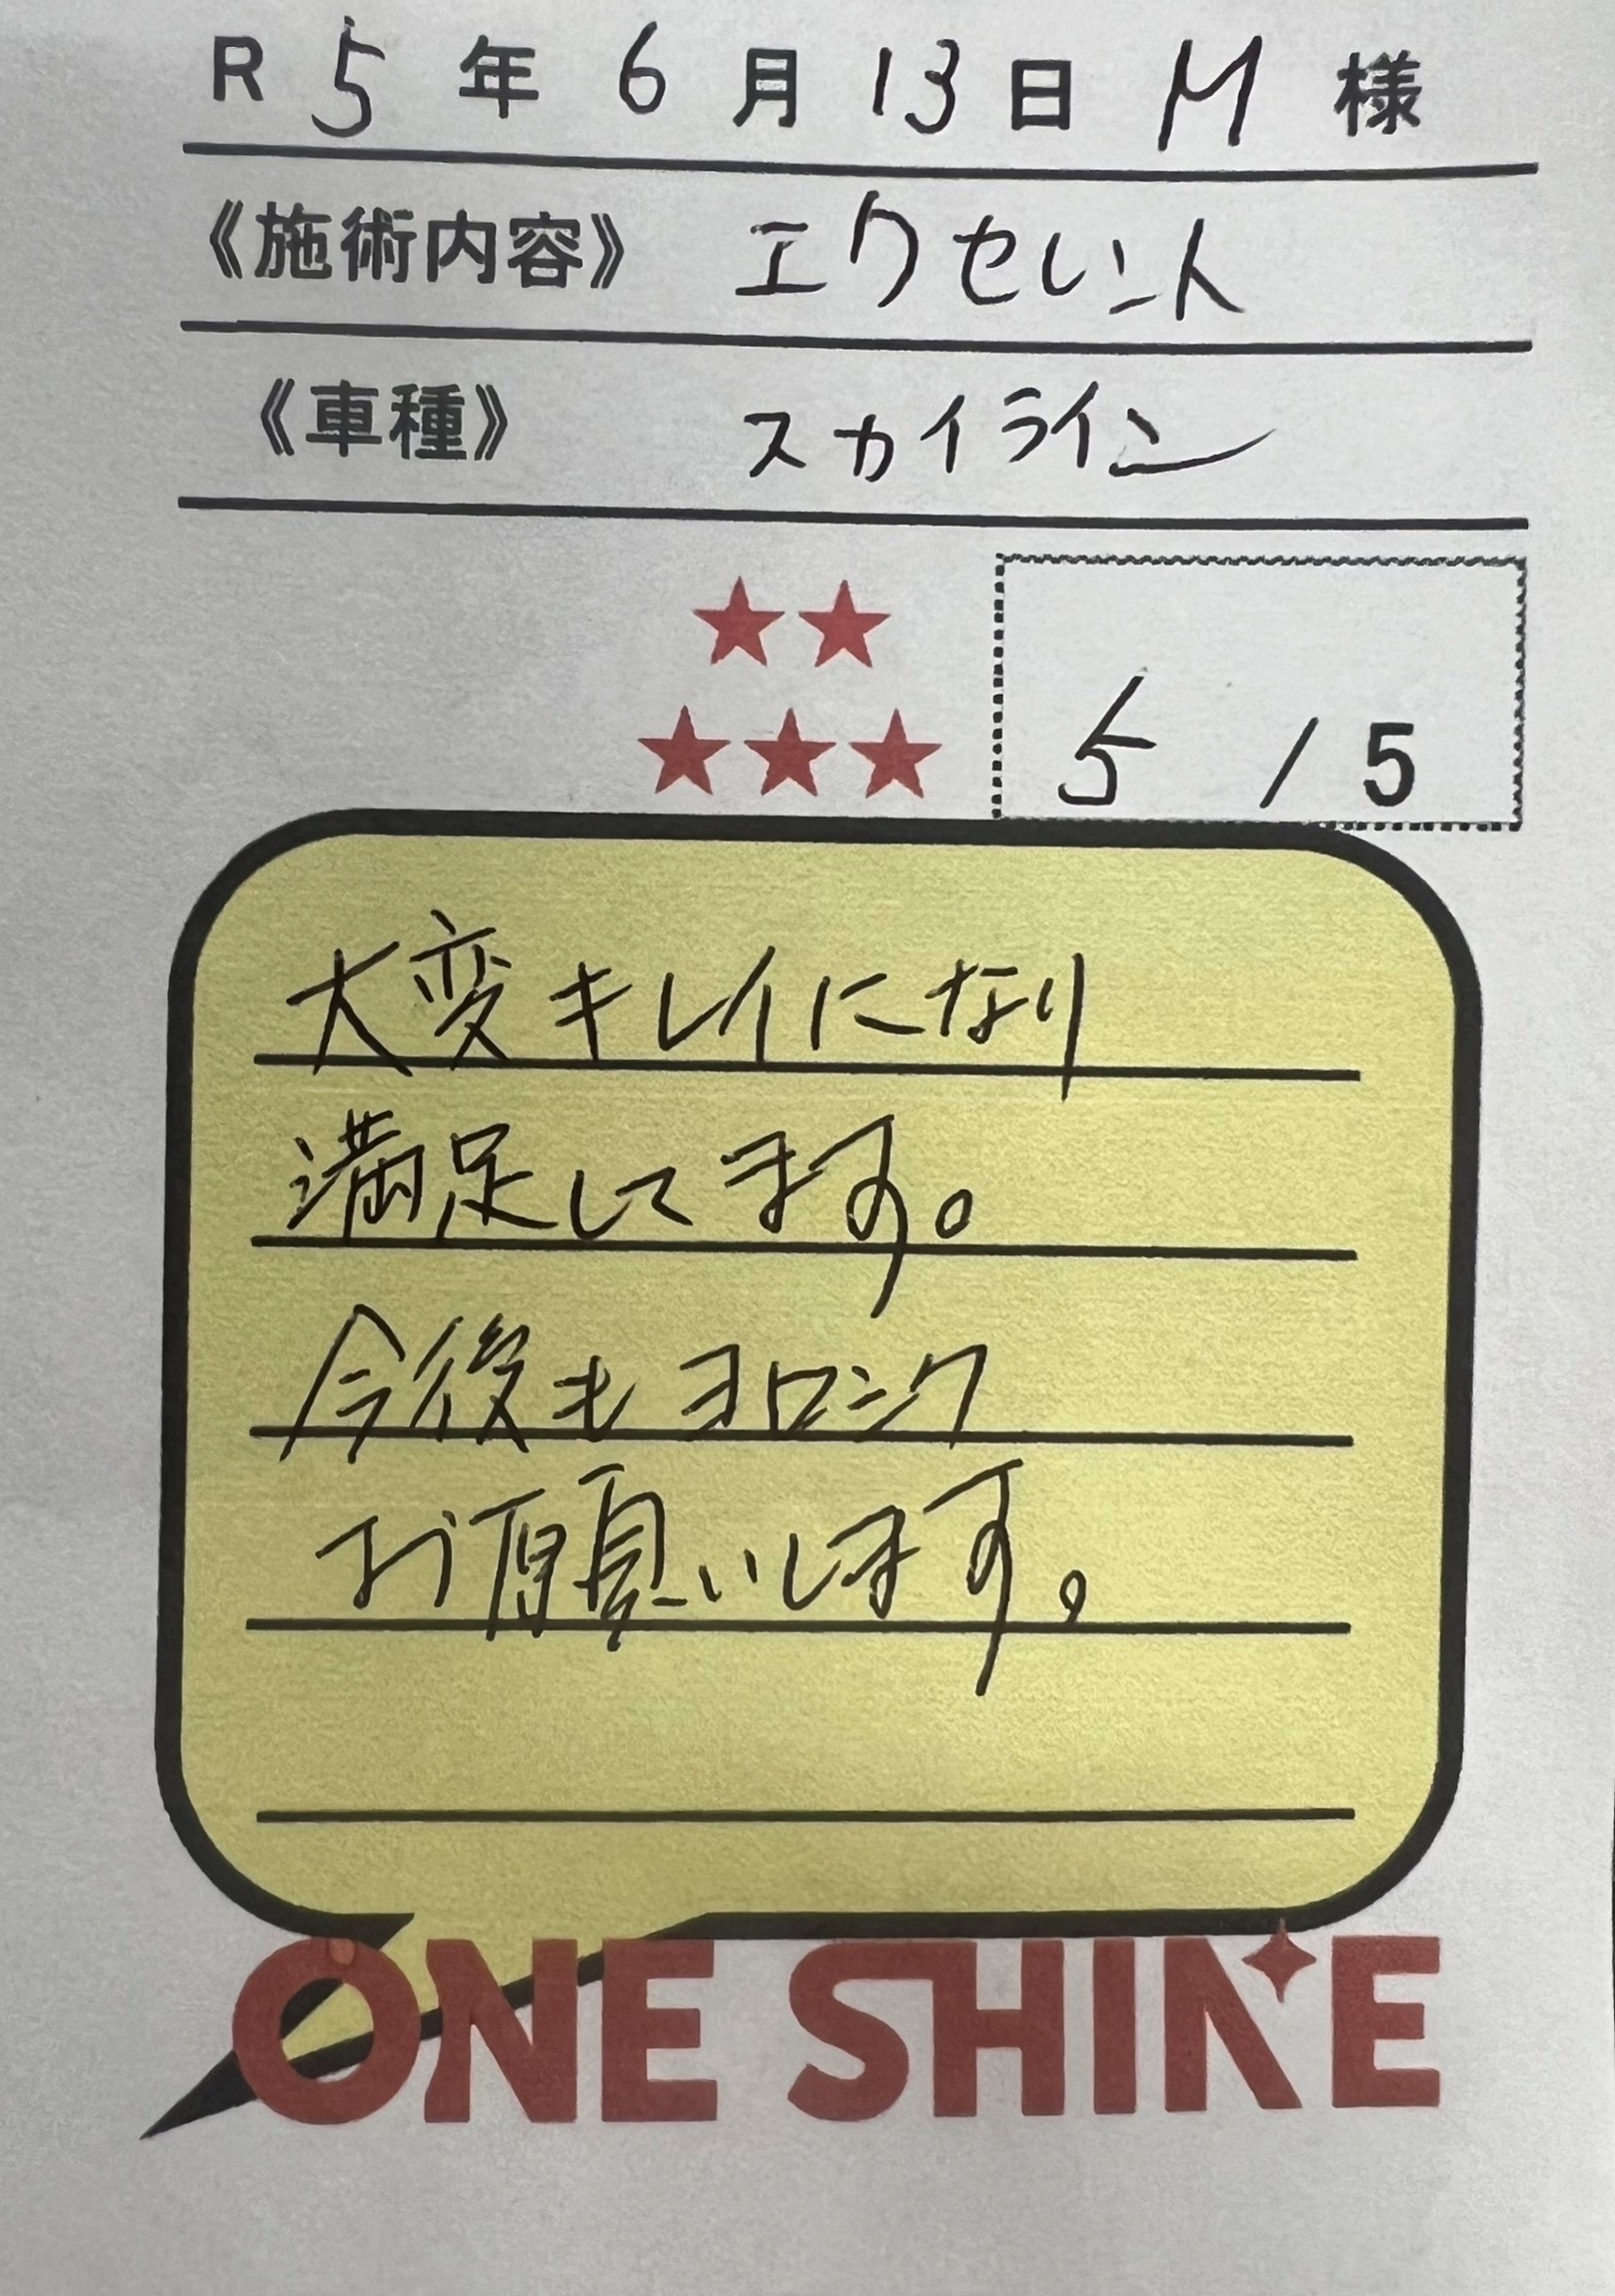 R 5 年 6 月 13 日 M 様
《施術内容》 エクセレント
《車種》 スカイライン
★★
★★★ 5 / 5
大変キレイになり
満足してます。
今後もヨロシク
お願いします。
ONE SHINE